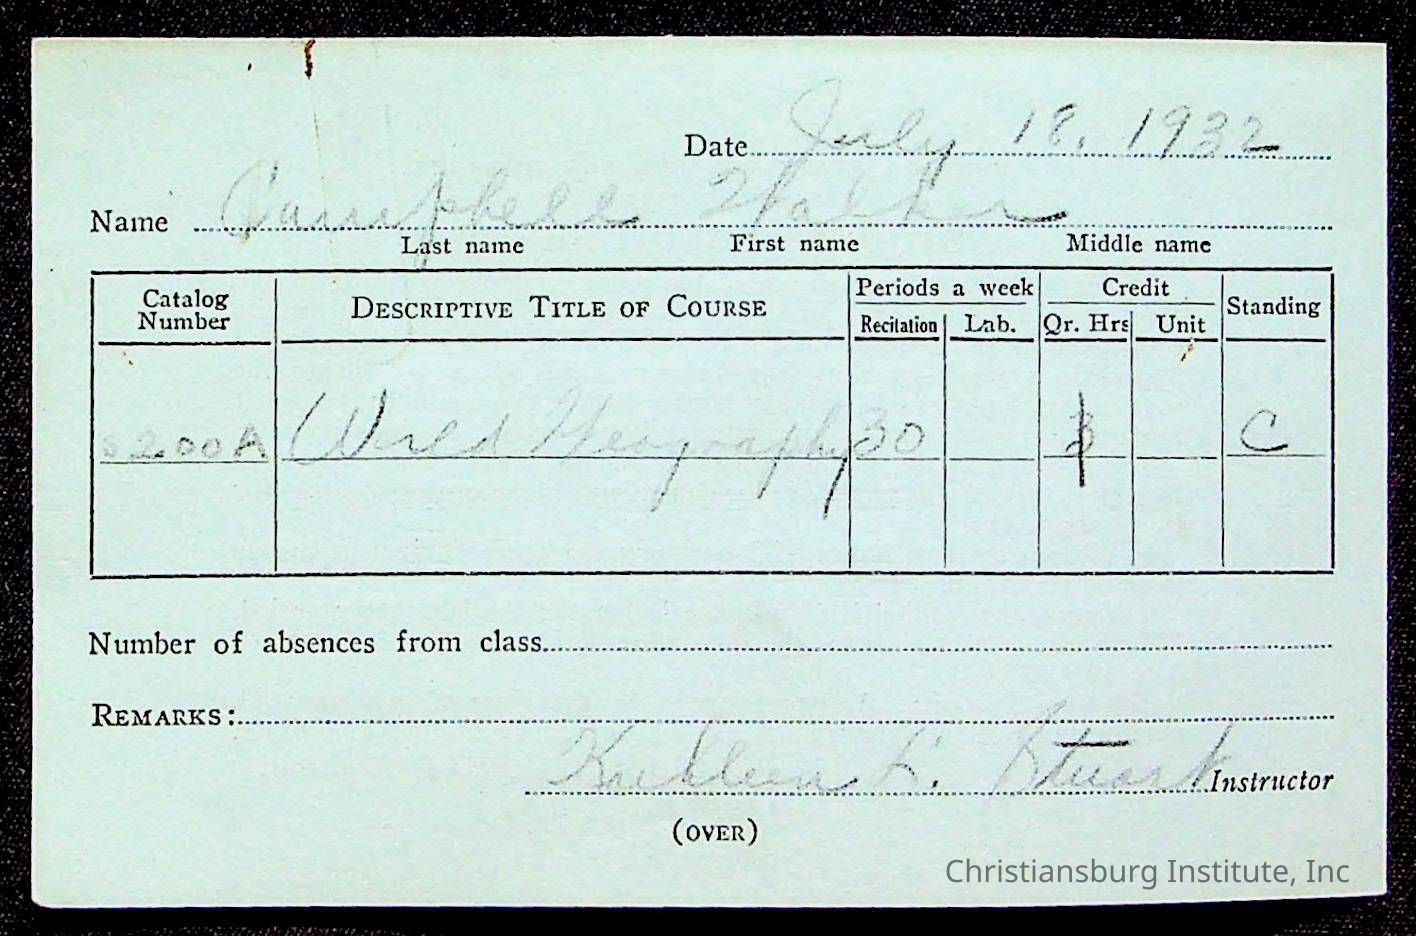 Date July 18, 1932
Name Campbell Walker
Last name First name Middle name
Catalog Number DESCRIPTIVE TITLE OF COURSE Periods a week Credit Standing
Recitation Lab. Qr. Hrs Unit
200A World Geography 30 3 C
Number of absences from class
REMARKS:
Kathleen E. Stuart Instructor
(OVER)
Christiansburg Institute, Inc